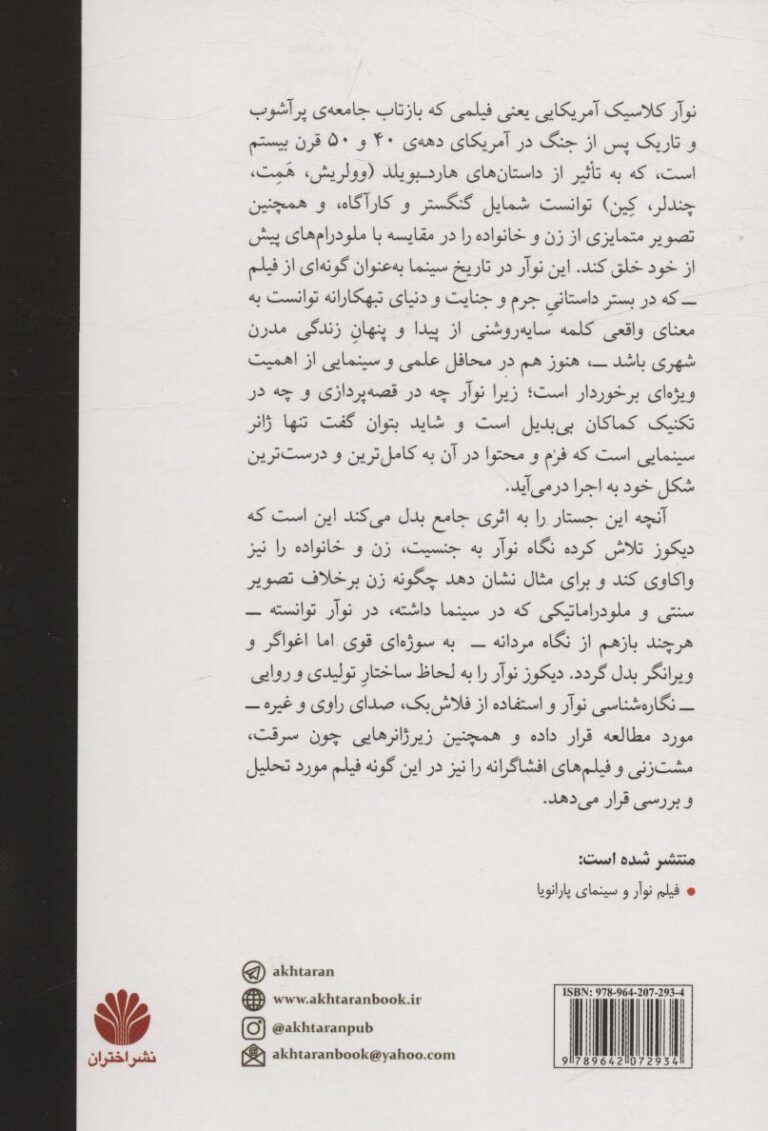 نوآر کلاسیک آمریکایی یعنی فیلمی که بازتاب جامعه‌ی پرآشوب
و تاریک پس از جنگ در آمریکای دهه‌ی ۴۰ و ۵۰ قرن بیستم
است، که به تأثیر از داستان‌های هاردـبویلد (وولریش، هَمِت،
چندلر، کِین) توانست شمایل گنگستر و کارآگاه، و همچنین
تصویر متمایزی از زن و خانواده را در مقایسه با ملودرام‌های پیش
از خود خلق کند. این نوآر در تاریخ سینما به‌عنوان گونه‌ای از فیلم
ـ که در بستر داستانیِ جرم و جنایت و دنیای تبهکارانه توانست به
معنای واقعی کلمه سایه‌روشنی از پیدا و پنهانِ زندگی مدرن
شهری باشد ـ، هنوز هم در محافل علمی و سینمایی از اهمیت
ویژه‌ای برخوردار است؛ زیرا نوآر چه در قصه‌پردازی و چه در
تکنیک کماکان بی‌بدیل است و شاید بتوان گفت تنها ژانر
سینمایی است که فرم و محتوا در آن به کامل‌ترین و درست‌ترین
شکل خود به اجرا درمی‌آید.
آنچه این جستار را به اثری جامع بدل می‌کند این است که
دیکوز تلاش کرده نگاه نوآر به جنسیت، زن و خانواده را نیز
واکاوی کند و برای مثال نشان دهد چگونه زن برخلاف تصویر
سنتی و ملودراماتیکی که در سینما داشته، در نوآر توانسته ـ
هرچند بازهم از نگاه مردانه ـ به سوژه‌ای قوی اما اغواگر و
ویرانگر بدل گردد. دیکوز نوآر را به لحاظ ساختارِ تولیدی و روایی
ـ نگاره‌شناسی نوآر و استفاده از فلاش‌بک، صدای راوی و غیره ـ
مورد مطالعه قرار داده و همچنین زیرژانرهایی چون سرقت،
مشت‌زنی و فیلم‌های افشاگرانه را نیز در این گونه فیلم مورد تحلیل
و بررسی قرار می‌دهد.
منتشر شده است:
● فیلم نوآر و سینمای پارانویا
akhtaran
www.akhtaranbook.ir
@akhtaranpub
akhtaranbook@yahoo.com
نشر اختران
ISBN: 978-964-207-293-4
9 789642 072934